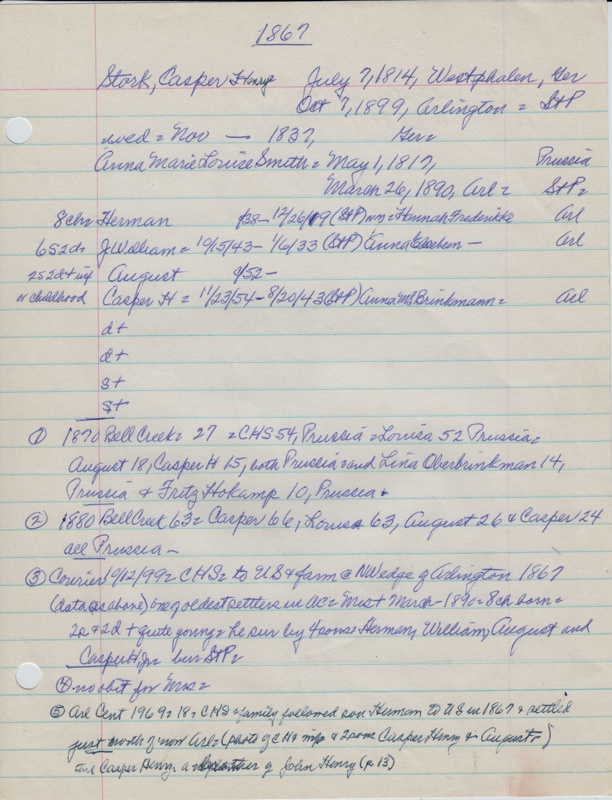 1867
Stork, Casper Henry July 7, 1814, Westphalen, Ger
Oct 7, 1899, Arlington = St P
wed = Nov — 1837, Ger =
Anna Marie Louise Smith = May 1, 1817, Prussia
March 26, 1890, Arl = St P =
8ch = Herman /38 - 12/26/09 (St P) = Hannah Fredericke Arl
6 s 2 d = J William = 10/15/43 - 1/6/33 (St P) Anna — Arl
2 s 2 d + inf August /52 -
or childhood Casper H = 11/23/54 - 8/20/43 (St P) Anna M S Brinkmann = Arl
d +
d +
s +
s +
① 1870 Bell Creek = 27 = CHS 54, Prussia = Louisa 52 Prussia =
August 18, Casper H 15, both Prussia = and Lina Oberbrinkman 14,
Prussia & Fritz Hokamp 10, Prussia
② 1880 Bell Creek 63 = Casper 66, Louisa 63, August 26 & Casper 24
all Prussia —
③ Courier 10/12/99 = CHS = to US & farm @ NW edge of Arlington 1867
(data as above) one of oldest settlers in = Mrs + March - 1890 = 8ch born =
2s & 2d + quite young = he sur by 4 sons = Herman, William, August and
Casper H, Jr = bur St P =
④ no obit for Mrs =
⑤ Arl Cent 1969 = 18 = CHS & family followed son Herman to US in 1867 & settled
just north of now Arl = (photo of CHS & 2 sons Casper Henry & August.)
Casper Henry a of John Henry (p 13)